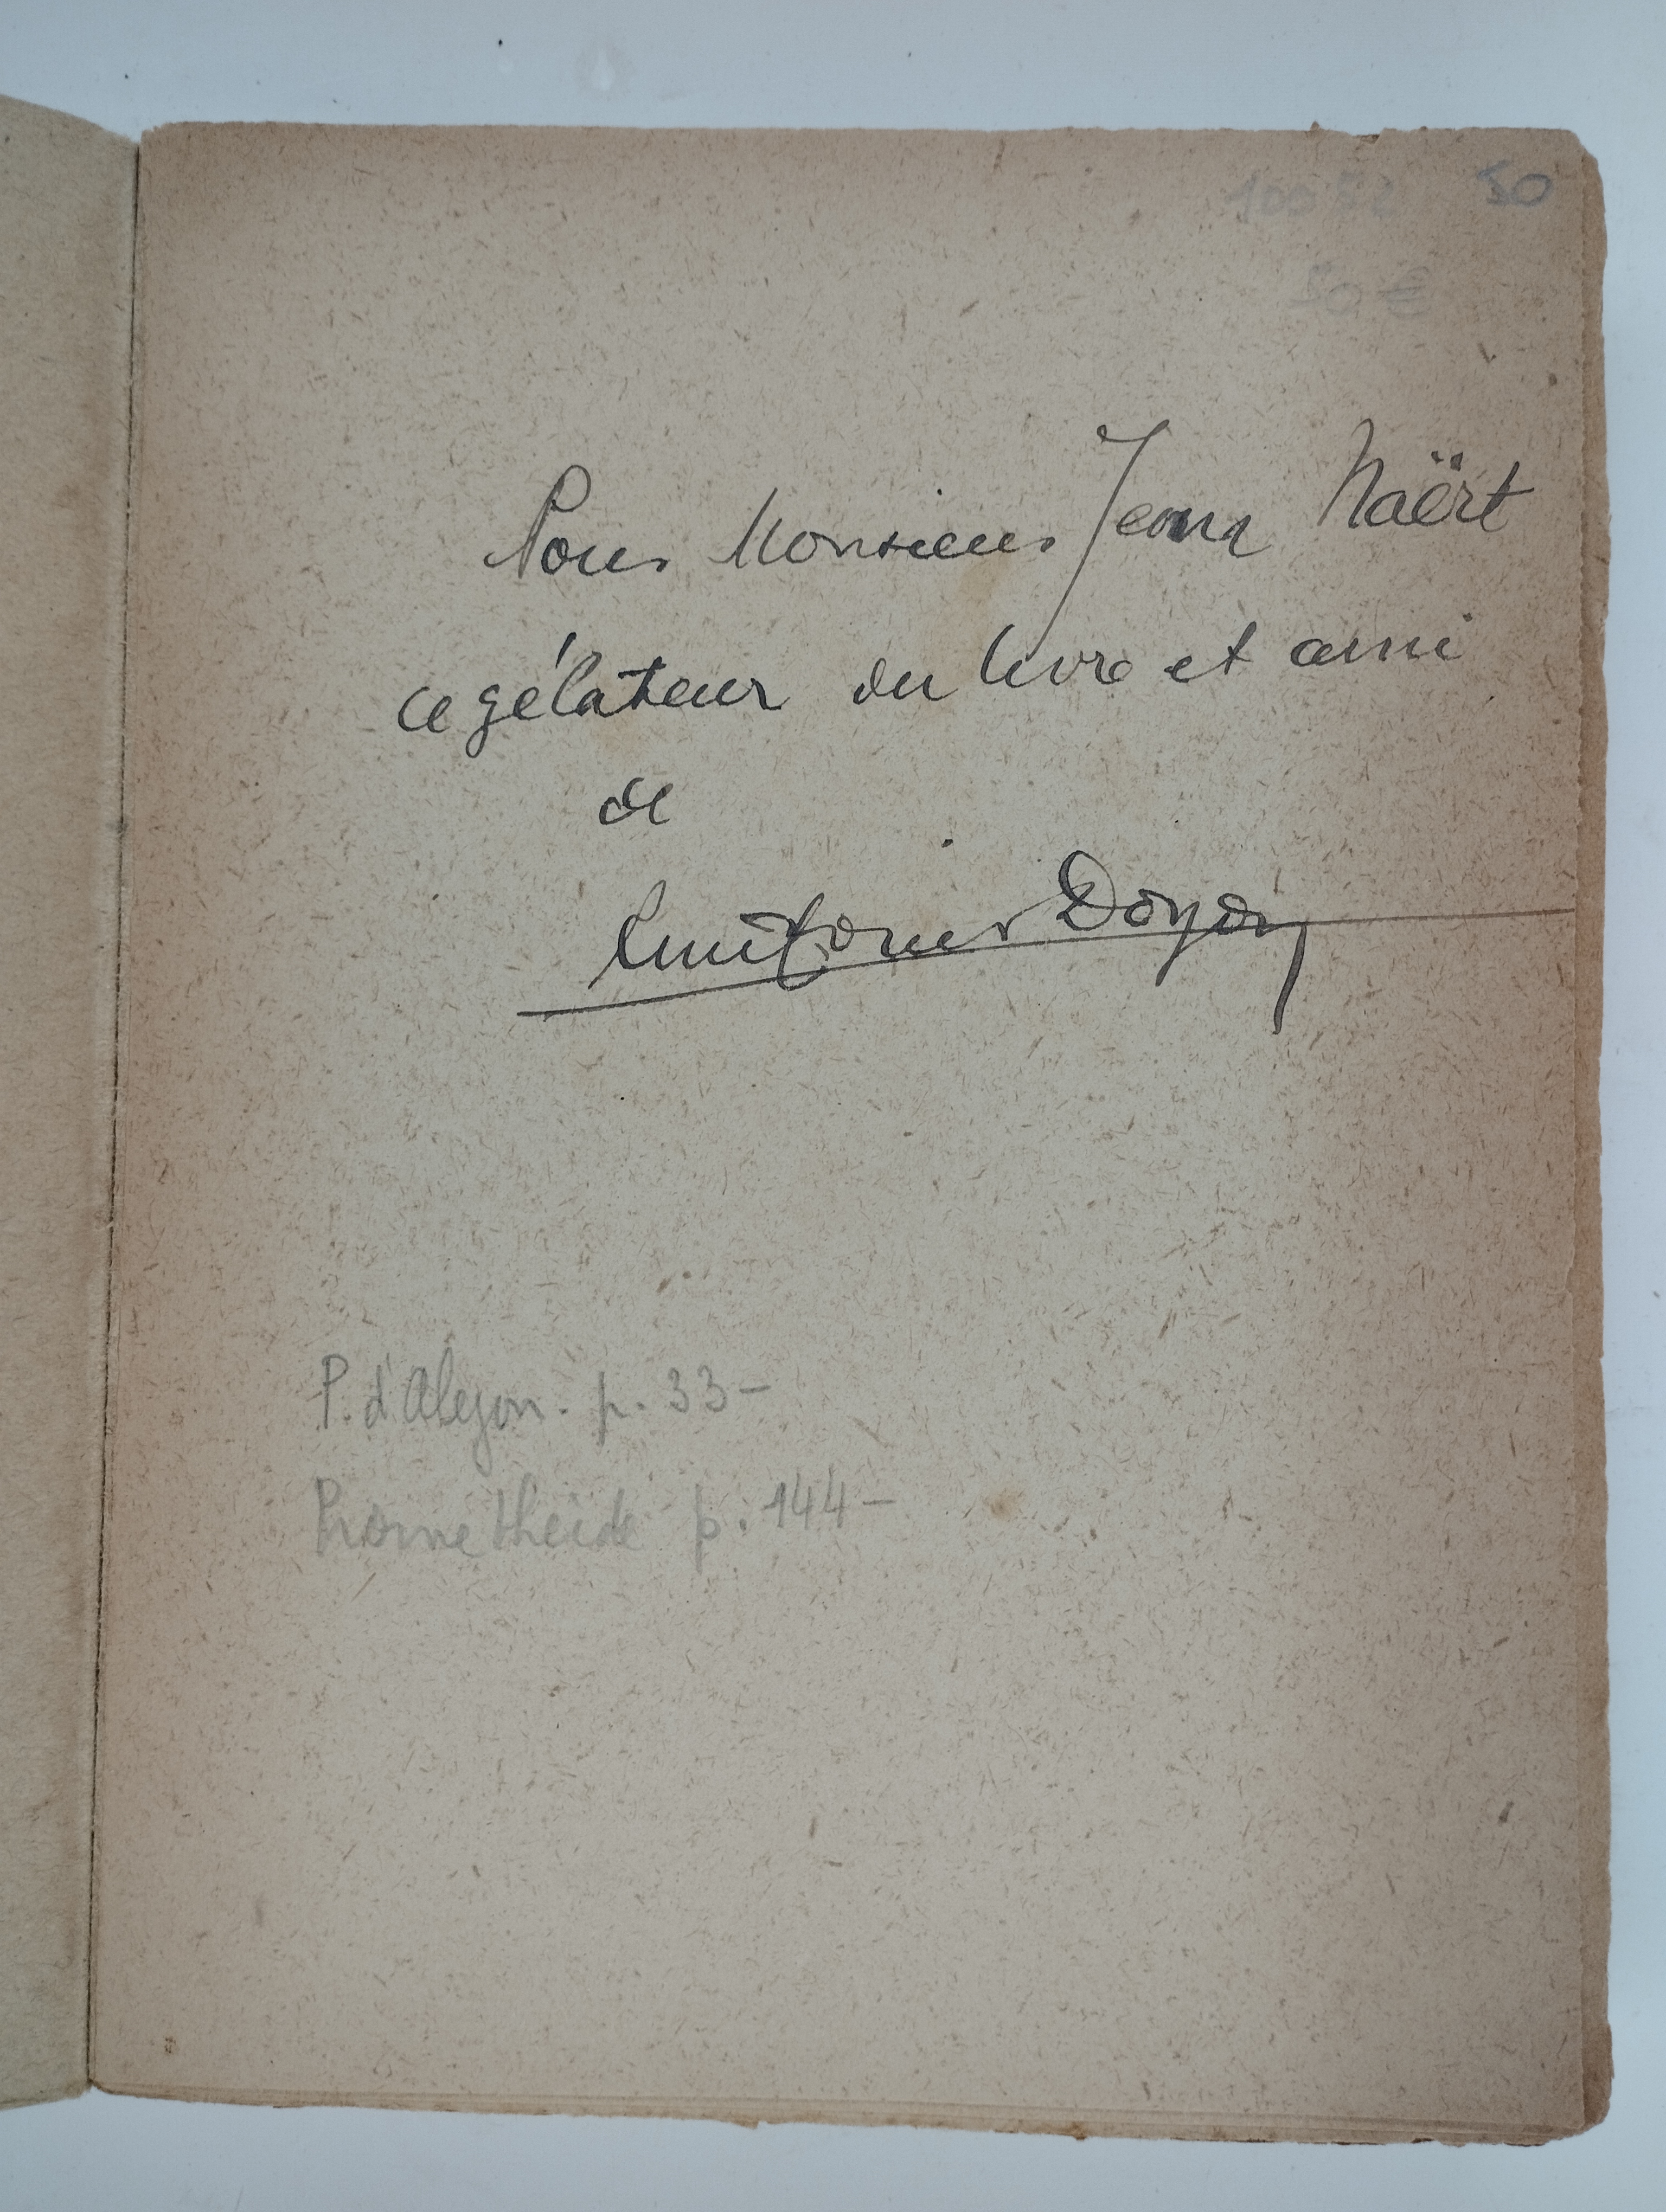 50
50 €
Pour Monsieur Jean Naërt
ce zélateur du livre et ami
de
Doyon
P. d'Aleyon. p. 33 –
Prometheide p. 144 –